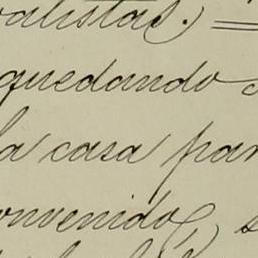 alistas.
quedando
la casa par
onvenido, s